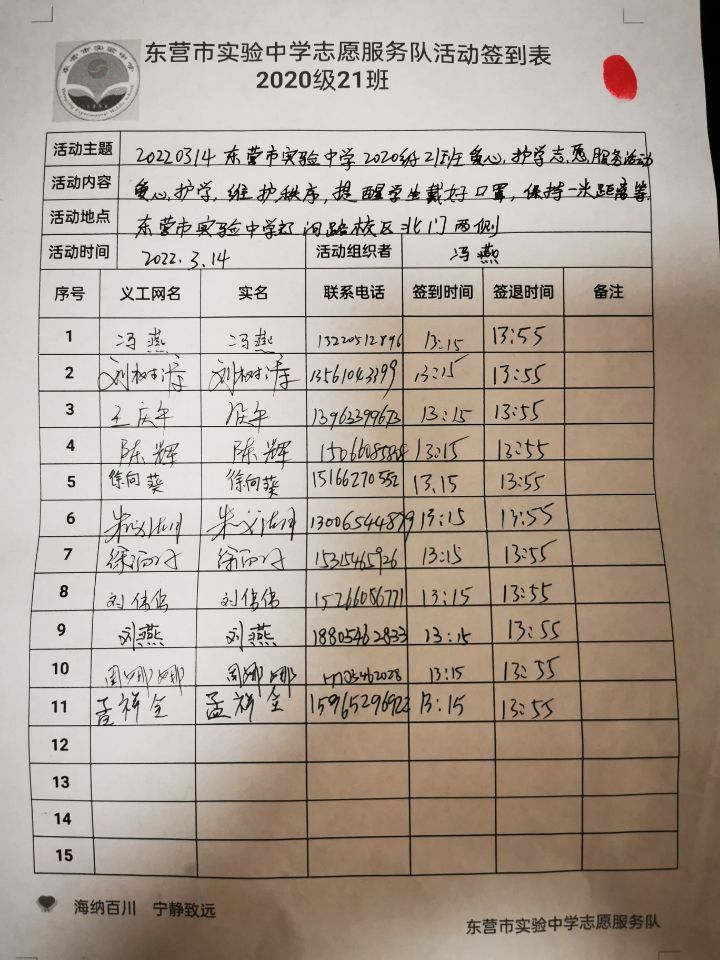 东营市实验中学志愿服务队活动签到表
2020级21班
活动主题 20220314 东营市实验中学2020级21班爱心护学志愿服务活动
活动内容 爱心护学,维护秩序,提醒学生戴好口罩,保持一米距离等.
活动地点 东营市实验中学 河路校区北门两侧
活动时间 2022.3.14 活动组织者 冯燕
序号 义工网名 实名 联系电话 签到时间 签退时间 备注
1 冯燕 冯燕 13220512896 13:15 13:55
2 刘树涛 刘树涛 13561043399 13:15 13:55
3 王庆午 13963399673 13:15 13:55
4 陈辉 陈辉 13:15 13:55
5 徐向葵 徐向葵 15166270552 13.15 13:55
6 13006544879 13:15 13:55
7 15315465926 13:15 13:55
8 刘伟伟 刘伟伟 15266056771 13:15 13:55
9 刘燕 刘燕 18805462833 13:15 13:55
10 周娜娜 周娜娜 13:15 13:55
11 孟祥全 孟祥全 13:15 13:55
12
13
14
15
海纳百川 宁静致远
东营市实验中学志愿服务队